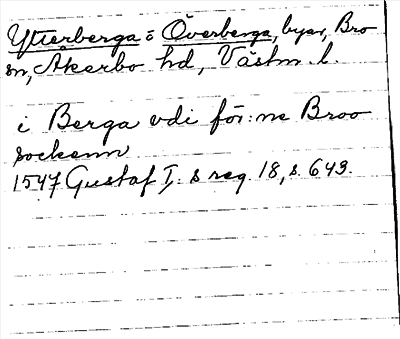 Ytterberga o Överberga, byar, Bro
sn, Åkerbo hd, Västm. l.
i Berga vdi för:ne Broo
sockenn
1547 Gustaf I:s reg. 18, s. 643.